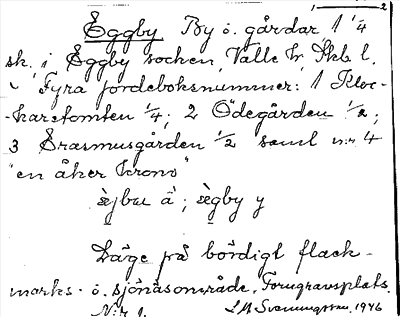 1 2
Eggby By o. gårdar, 1 1/4
sk. i Eggby socken, Valle hr, Skb l.
Fyra jordeboksnummer: 1 Kloc-
-karetomten 1/4; 2 Ödegården 1/2;
3 Erasmusgården 1/2 samt n:r 4
"en åker krono"
ägby y
Läge på bördigt flack-
marks- o. sjönäsområde. Forngravsplats.
N:r 1. 1946